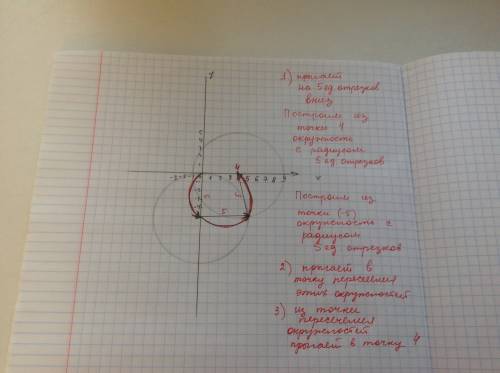 y
5
4
3
2
1
4
-2 -1 1 2 3 4 5 6 7 8 9 x
5
1) прыгает
на 5 ед. отрезков
вниз
Построим из
точки 4
окружность
с радиусом
5 ед. отрезков
Построим из
точки (-5)
окружность с
радиусом
5 ед. отрезков
2) прыгает в
точку пересечения
этих окружностей
3) из точки
пересечения
окружностей
прыгает в точку 4